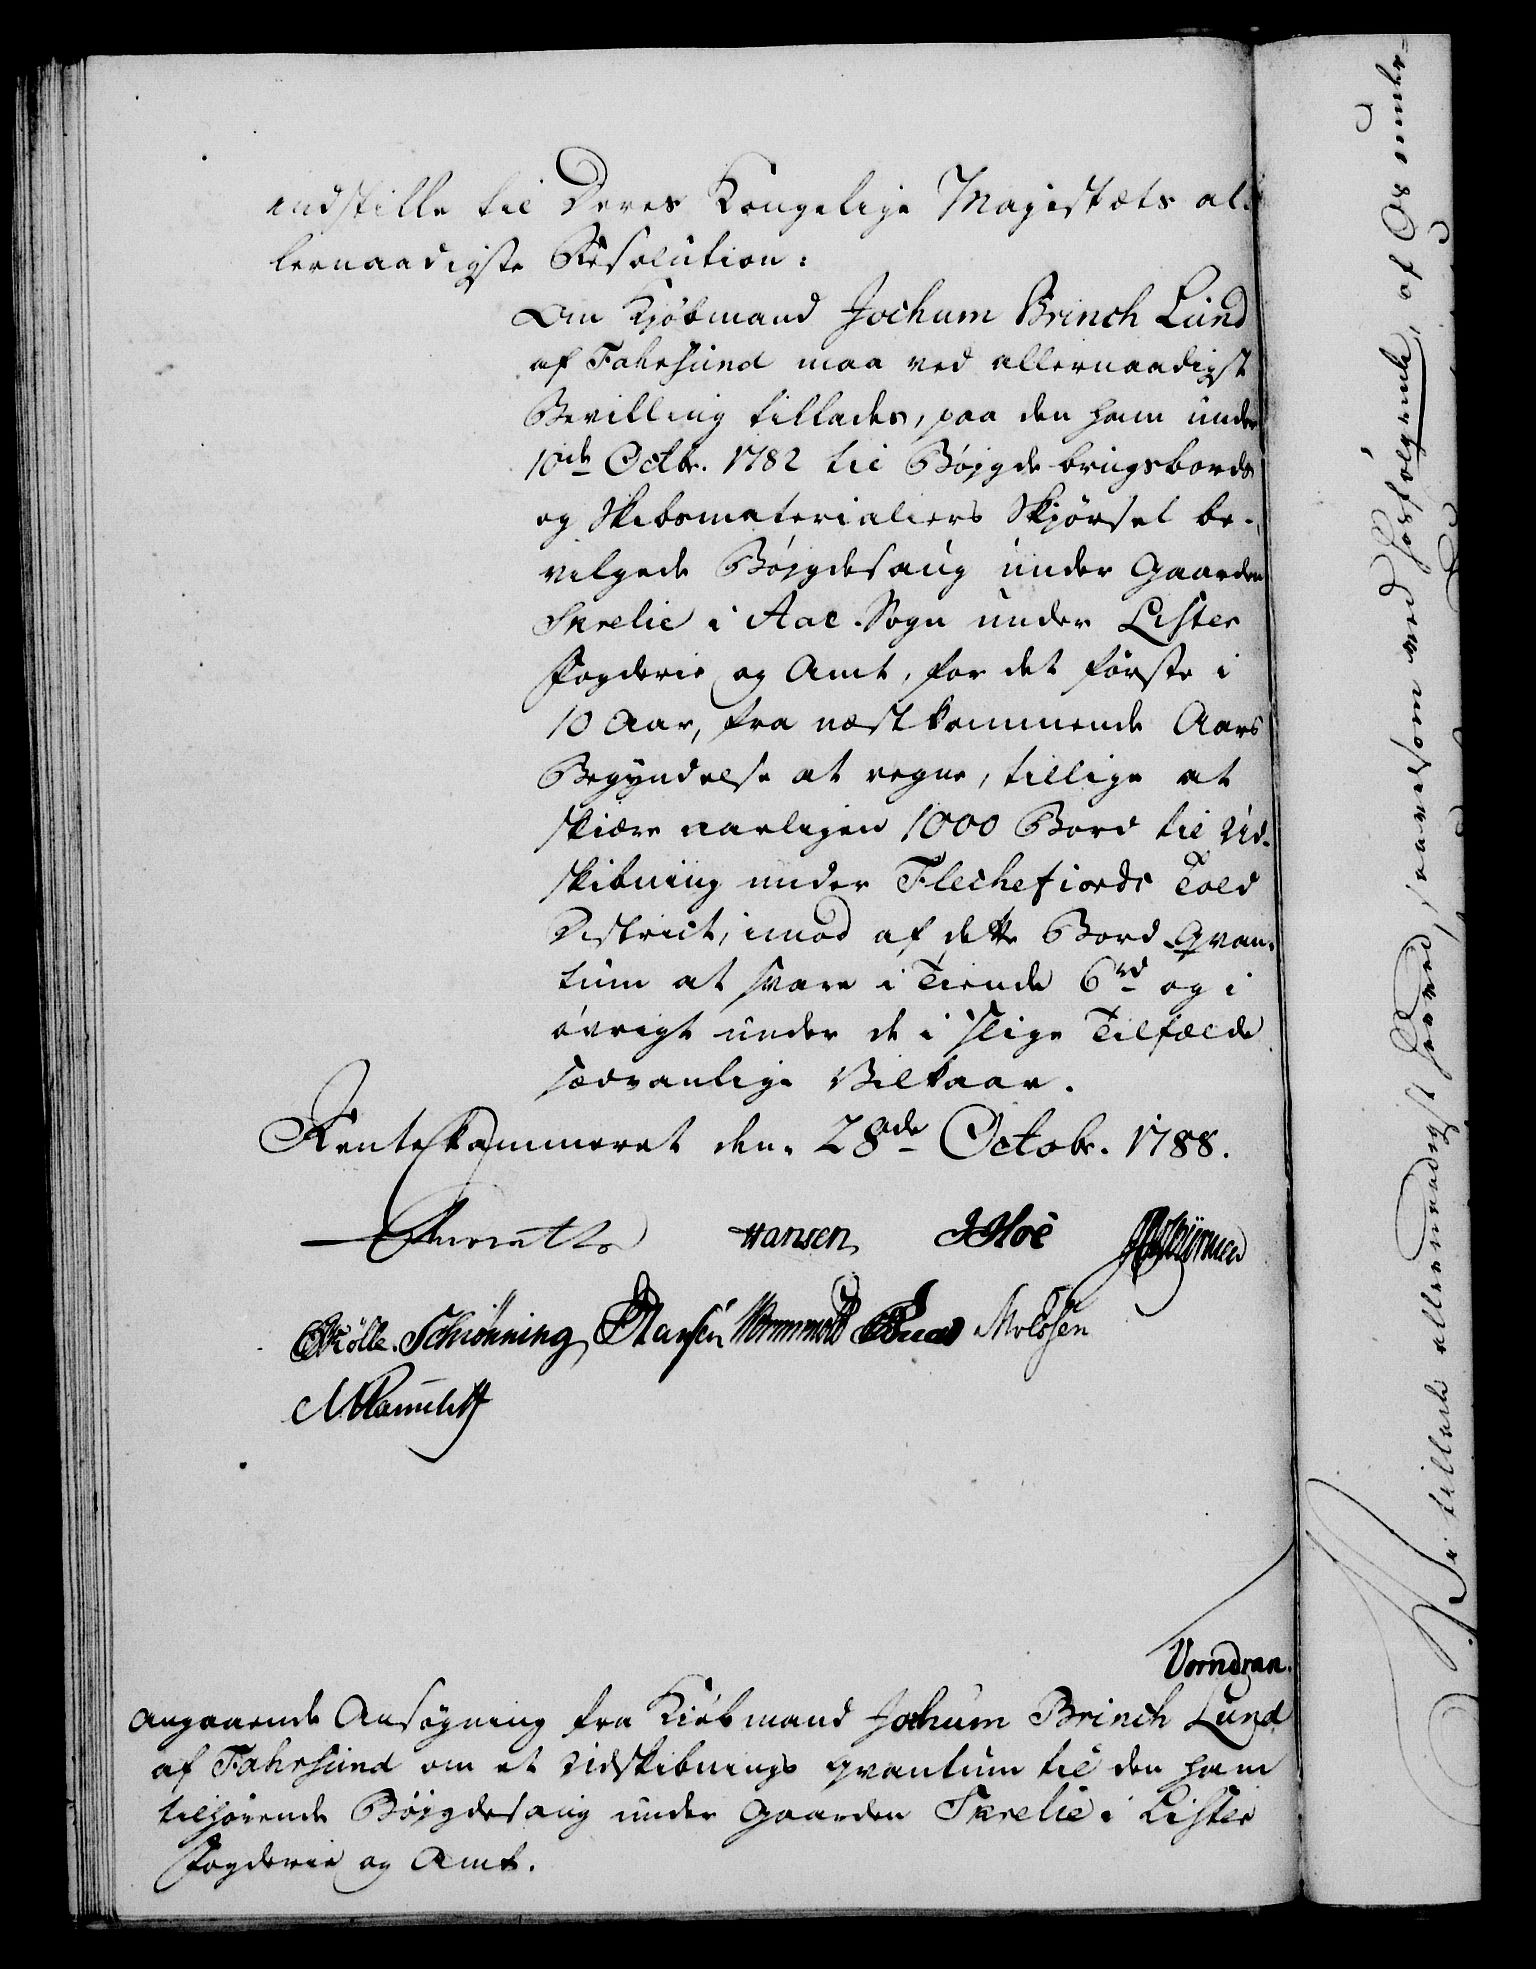 indstille til Deres Kongelige Majestæts al-
lernaadigste Resolution:
Om Kjöbmand Jochum Brinch Lund
af Fahrsund maa ved allernaadigst
Bevilling tillades, paa den ham under
10de Octbr. 1782 til Böjgdebrugsbords
og Skibsmaterialiers Skjörsel be-
vilgede Böjgdesaug under Gaarden
Skrelie i Aae Sogn under Lister
Fogderie og Amt, for det förste i
10 Aar, fra næstkommende Aars
Begyndelse at regne, tillige at
skiære aarligen 1000 Bord til Ud-
skibning under Flechefiords Told
District, imod af dette Bord-Qvan-
tum at svare i Tiende 6 rd og i
övrigt under de i slige Tilfælde
sædvanlige Vilkaar.
Rentekammeret den 28de Octobr. 1788.
Hansen JHoë
Schiønning PHansen Wormskiold Moldsen
Vorndran.
Angaaende Ansøgning fra Kiöbmand Jochum Brinch Lund
af Fahrsund om et Udskibnings qvantum til den ham
tilhörende Böjgdesaug under Gaarden Skrelie i Lister
Fogderie og Amt.
Vi tillade allernaadigst herved, saavelsom ved hosfølgende, af Os under-